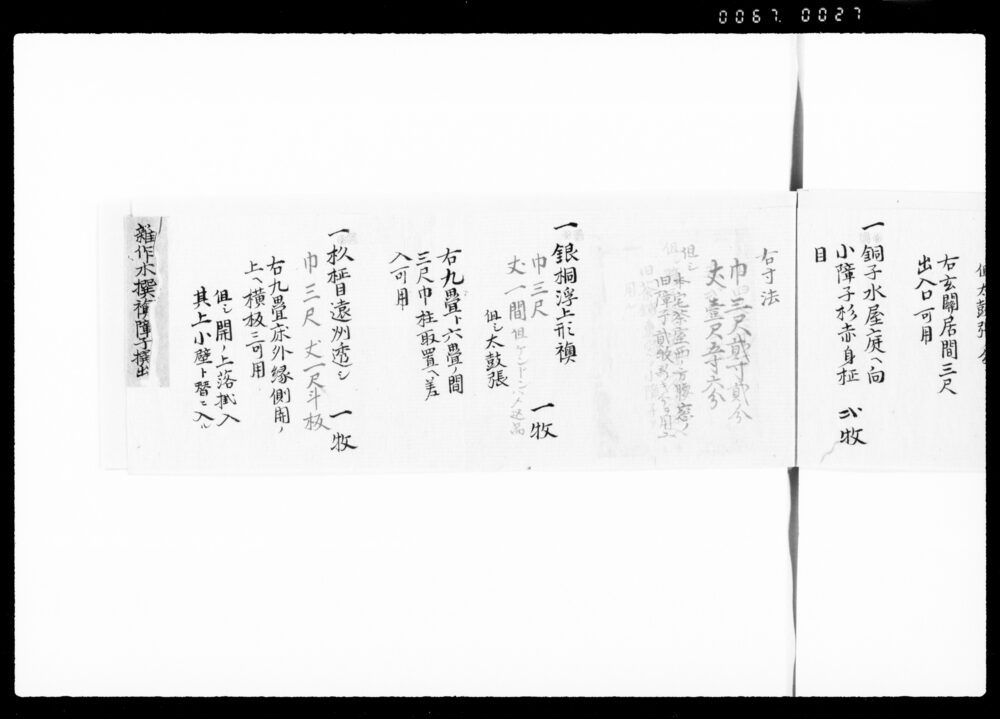 0067. 0027
但太鼓張
右玄關居間三尺
出入口可用
一銅子水屋庭へ向
小障子杉赤身柾 弐牧
目
右寸法
巾三尺貳寸貳分
丈壹尺五寸六分
但シ本宅茶屋西方腰窓ノ
旧障子貳牧
一銀桐浮上形襖
巾三尺 一牧
丈一間但ケンドンハメ込品
但シ太鼓張
右九疊ト六疊ノ間
三尺巾柱取置ヘ差
入可用
一杦柾目遠州透シ 一牧
巾三尺 丈一尺斗板
右九疊床外縁側開ノ
上ヘ横板ニ可用
但シ開ノ上落掛入
其上小壁ト替ニ入ル
雜作水撰襖障子撰出